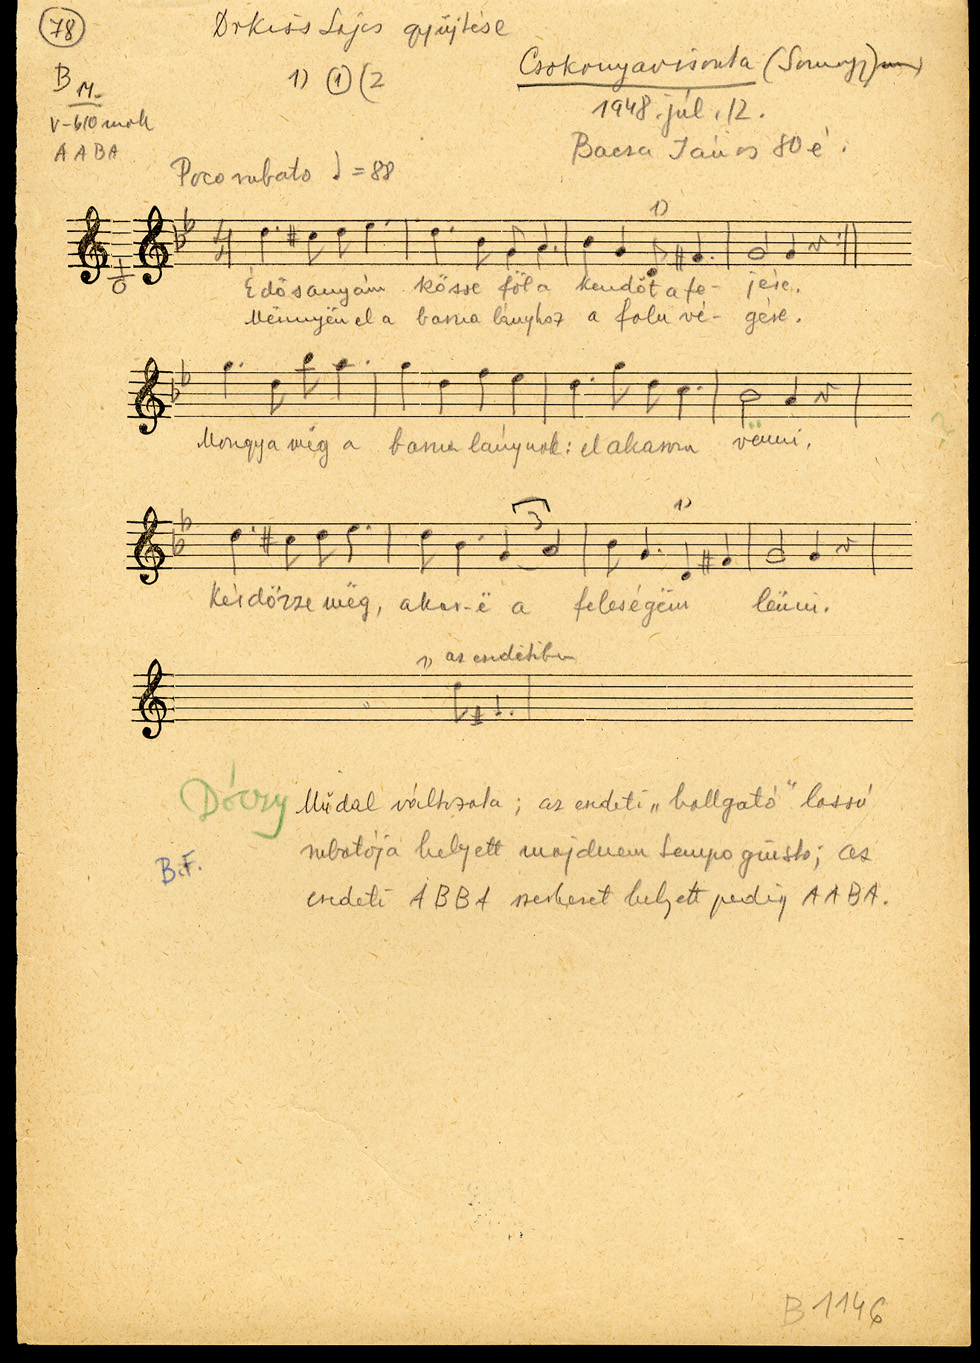 78
Dr Kiss Lajos gyűjtése
B
1) ① (2
Csokonyavisonta (Somogy)
V-610 mok
1948. júl. 12.
A A B A
Bacsa János 80 é.
Poco rubato ♩ = 88
1)
Édősanyám kösse föl a kendőt a fe- jére.
Mënnyën el a barna lányhoz a falu vé- gére.
Mongya még a barna lánynak: el akarom vënni,
?
3
1)
Kérdőzze mëg, akar-ë a feleségëm lënni.
1) az eredetiben
Dóczy
Műdal változata; az eredeti „hallgató" lassú
B.F.
rubatója helyett majdnem tempo giusto; az
eredeti ABBA szerkezet helyett pedig AABA.
B 1146